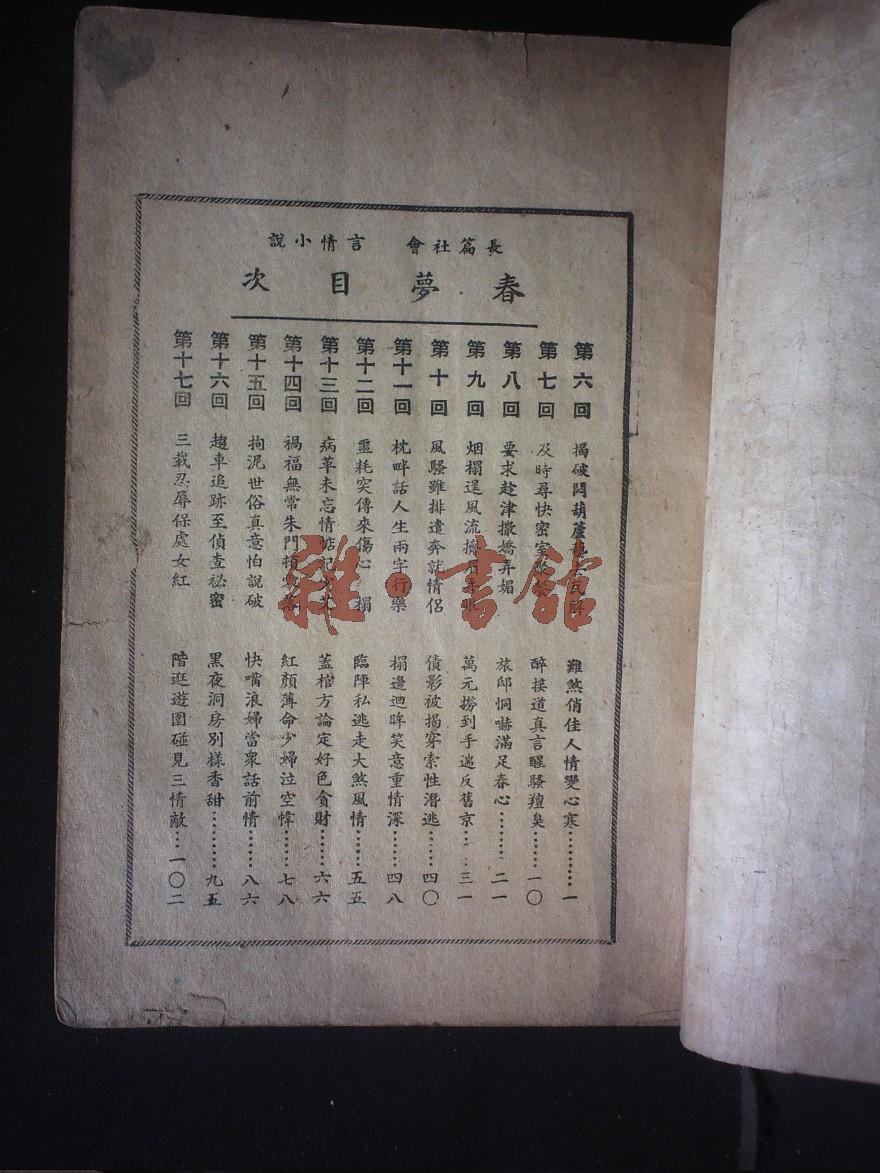 長篇社會 言情小說
春夢目次
第六回 揭破悶葫蘆 瓦解 難煞俏佳人情變心寒…………一
第七回 及時尋快密室 醉接道真言醒騷羶臭……一〇
第八回 要求赴津撒嬌弄媚 旅邸恫嚇滿足春心………二一
第九回 烟榻逞風流擠眉 萬元撈到手遄反舊京……三一
第十回 風騷雖排遣奔就情侶 債影被揭穿索性潛逃……四〇
第十一回 枕畔話人生兩字行樂 榻邊迴眸笑意重情深……四八
第十二回 噩耗突傳來傷心 榻 臨陣私逃走大煞風情……五五
第十三回 病革未忘情惦記 蓋棺方論定好色貪財……六六
第十四回 禍福無常朱門頓 落 紅顏薄命少婦泣空幃……七八
第十五回 拘泥世俗真意怕說破 快嘴浪婦當衆話前情……八六
第十六回 趟車追跡至偵查祕密 黑夜洞房別樣香甜………九五
第十七回 三載忍辱保處女紅 階逛遊園碰見三情敵…一〇二
雜·書館